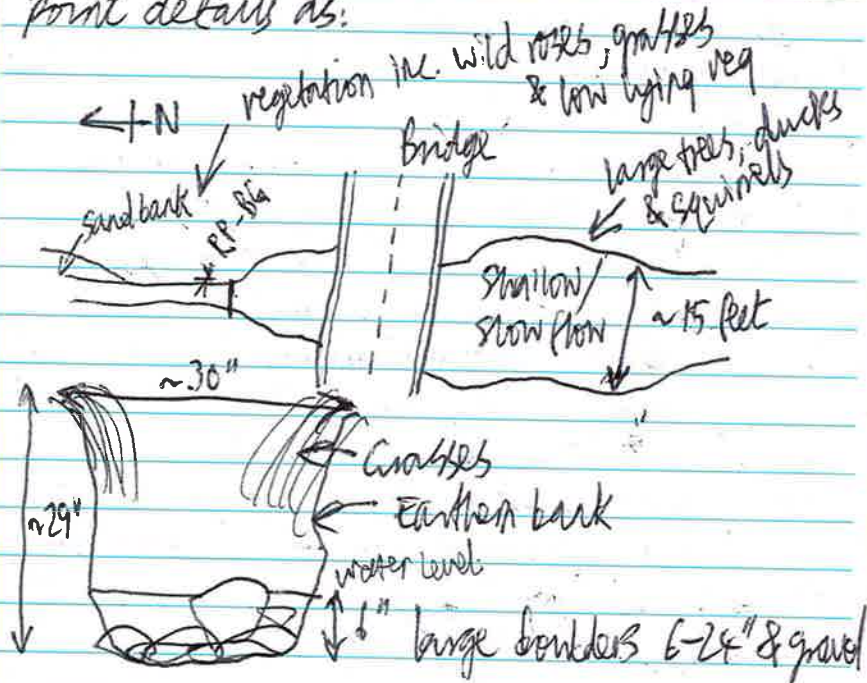 Point details as:
vegetation inc. wild roses, grasses
& low lying veg
N
Bridge
large trees, ducks
& squirrels
Sandbank
RP-BG
Shallow/
slow flow
~15 feet
~30"
Grasses
~29"
Earthen bank
water level
6"
large boulders 6-24" & gravel